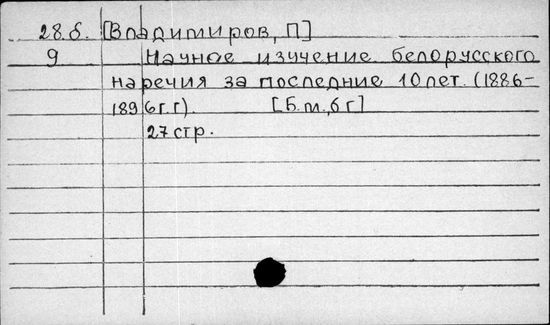 28.б. [Владимиров, П]
9 Научное изучение белорусского
наречия за последние 10 лет. (1886-
1896г.г). [Б.м., б г]
27 стр.